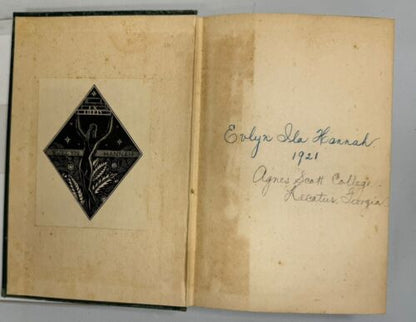 EVELYN HANNAH
Evlyn Ila Hannah
1921
Agnes Scott College
Decatur, Georgia